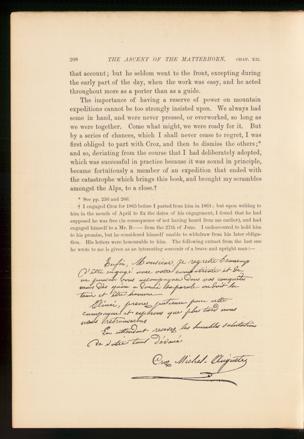 298 THE ASCENT OF THE MATTERHORN. CHAP. XXI.
that account; but he seldom went to the front, excepting during
the early part of the day, when the work was easy, and he acted
throughout more as a porter than as a guide.
The importance of having a reserve of power on mountain
expeditions cannot be too strongly insisted upon. We always had
some in hand, and were never pressed, or overworked, so long as
we were together. Come what might, we were ready for it. But
by a series of chances, which I shall never cease to regret, I was
first obliged to part with Croz, and then to dismiss the others;*
and so, deviating from the course that I had deliberately adopted,
which was successful in practice because it was sound in principle,
became fortuitously a member of an expedition that ended with
the catastrophe which brings this book, and brought my scrambles
amongst the Alps, to a close.†
* See pp. 236 and 260.
† I engaged Croz for 1865 before I parted from him in 1864; but upon writing to
him in the month of April to fix the dates of his engagement, I found that he had
supposed he was free (in consequence of not having heard from me earlier), and had
engaged himself to a Mr. B—— from the 27th of June. I endeavoured to hold him
to his promise, but he considered himself unable to withdraw from his later obliga-
tion. His letters were honourable to him. The following extract from the last one
he wrote to me is given as an interesting souvenir of a brave and upright man:—
Enfin, Monsieur, je regrette beaucoup
d'être engagé avec votre compatriote et de
ne pouvoir vous accompagner dans vos conquêtes
mais dès qu'on a donné sa parole on doit la
tenir et être homme
patience pour cette
campagne et espérons que plus tard nous
nous retrouverons
En attendant recevez les humbles salutations
de votre tout dévoué
Croz Michel-Auguste